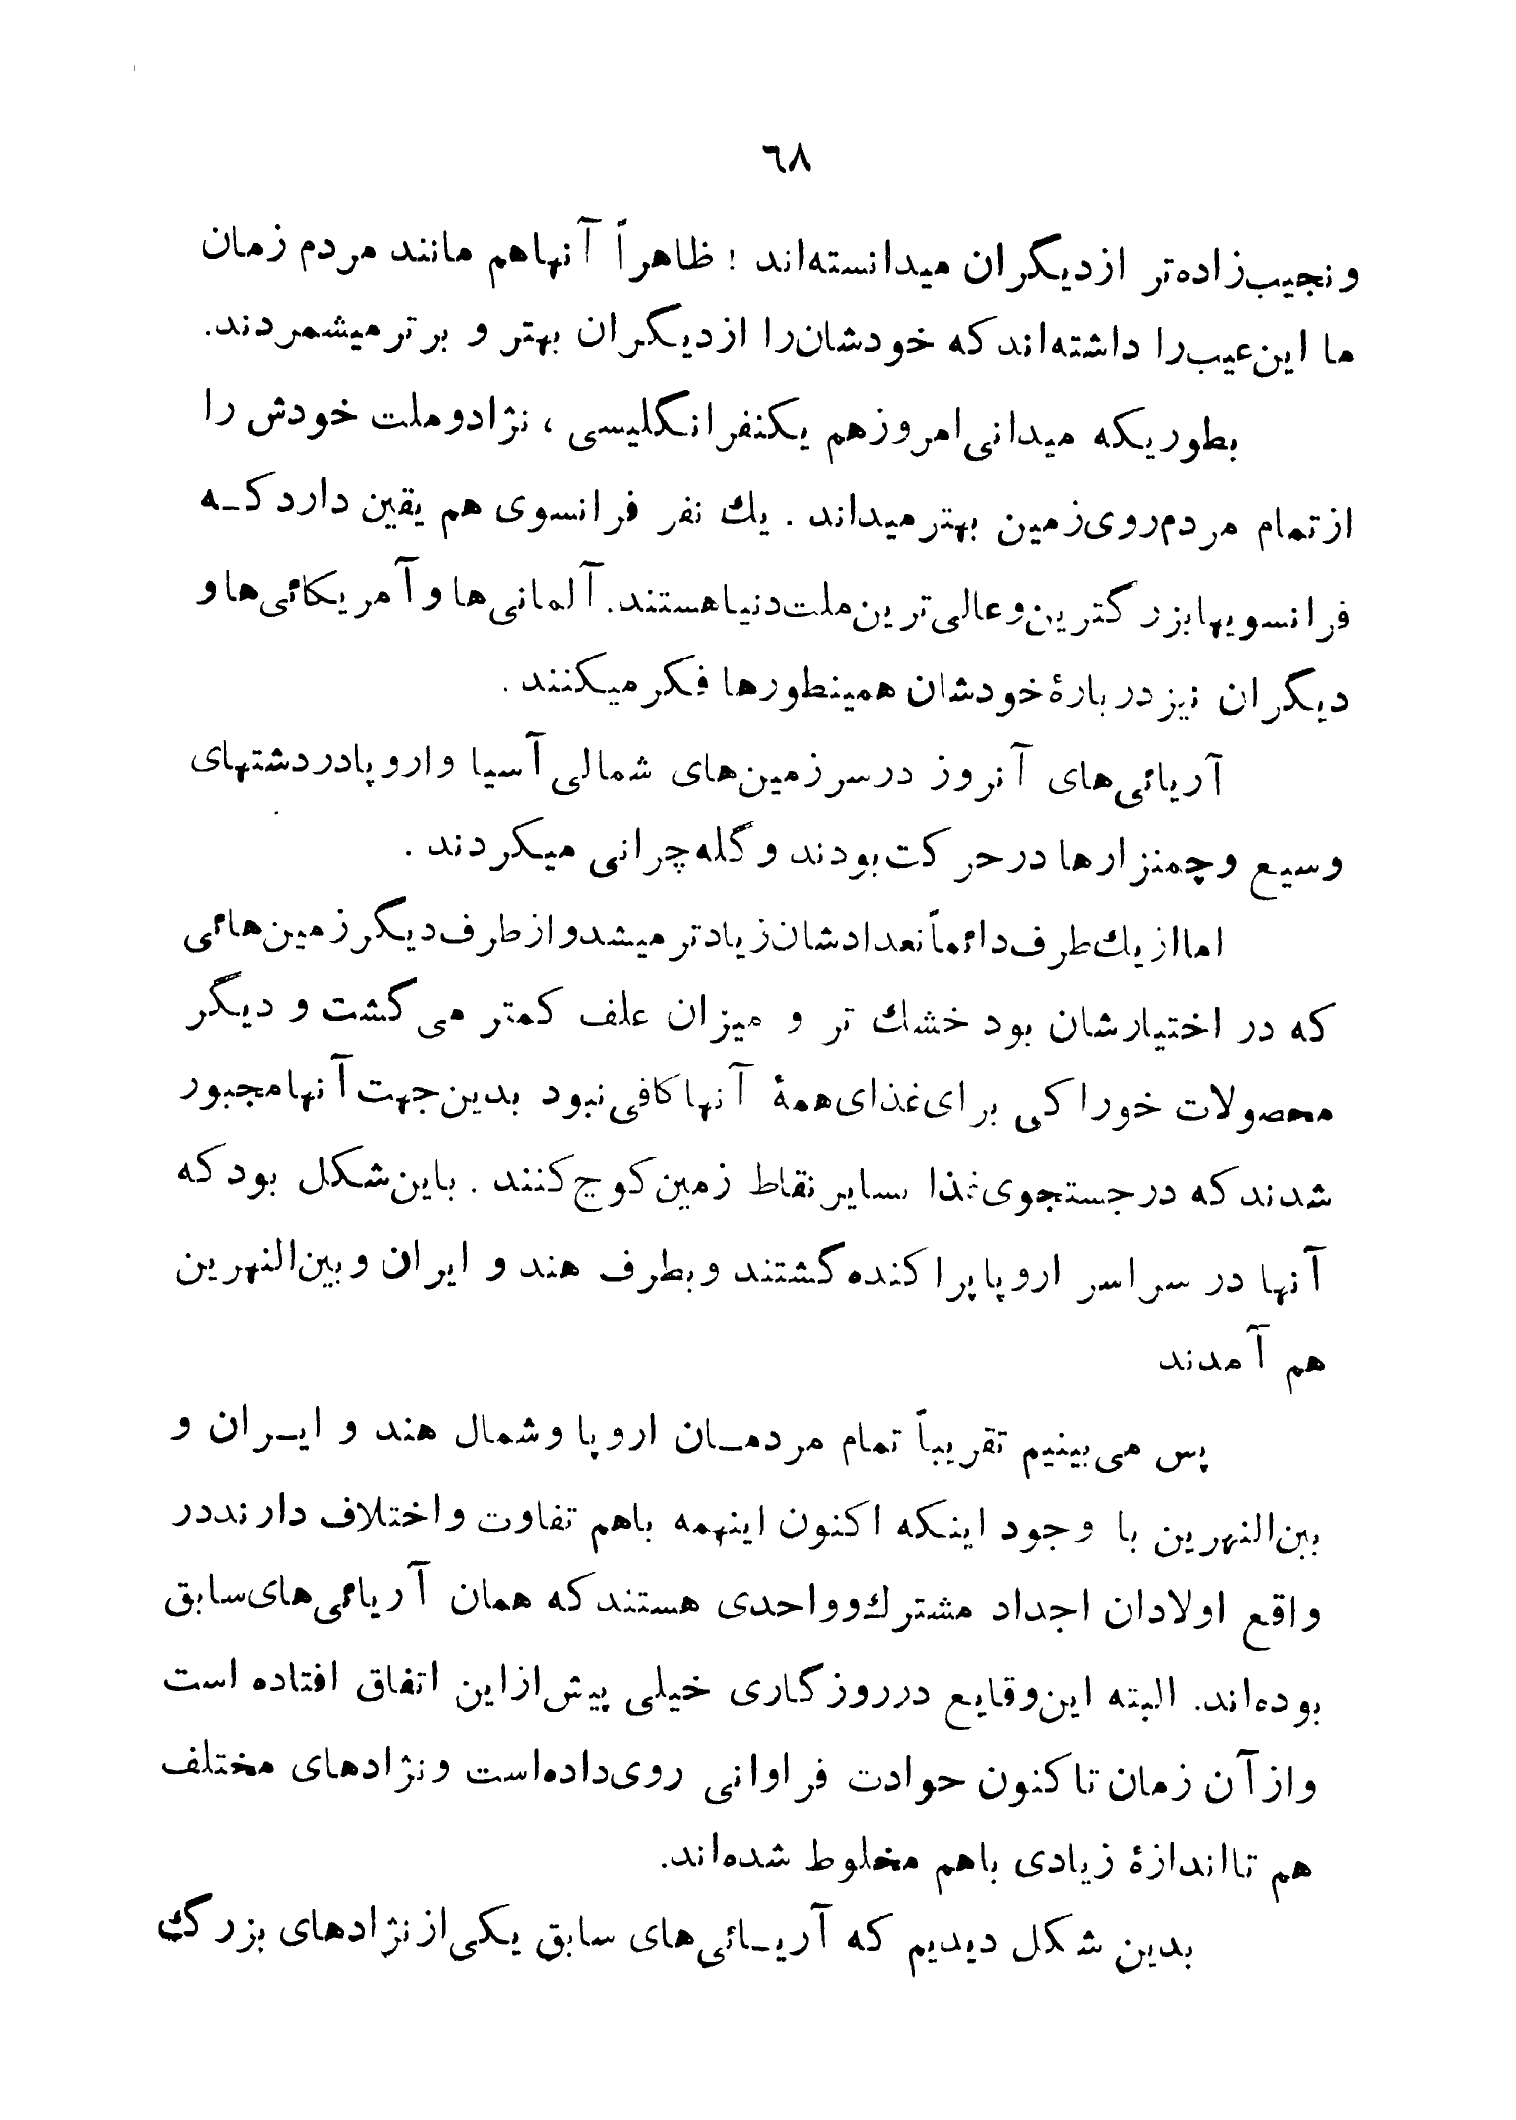 ٦٨
و نجیب‌زاده‌تر از دیگران میدانسته‌اند ! ظاهراً آنها هم مانند مردم زمان
ما این عیب را داشته‌اند که خودشان را از دیگران بهتر و برتر میشمردند.
بطوریکه میدانی امروز هم یکنفر انگلیسی ، نژاد و ملت خودش را
از تمام مردم روی زمین بهتر میداند . یك نفر فرانسوی هم یقین دارد کـه
فرانسویها بزرگترین و عالی‌ترین ملت دنیا هستند. آلمانی‌ها و آمریکائی‌ها و
دیگران نیز دربارهٔ خودشان همینطورها فکر میکنند .
آریائی‌های آنروز در سرزمین‌های شمالی آسیا و اروپا در دشتهای
وسیع و چمنزارها در حرکت بودند و گله‌چرانی میکردند .
اما از یك طرف دائماً تعدادشان زیادتر میشد و از طرف دیگر زمین‌هائی
که در اختیارشان بود خشك تر و میزان علف کمتر می گشت و دیگر
محصولات خوراکی برای غذای همهٔ آنها کافی نبود بدین جهت آنها مجبور
شدند که در جستجوی غذا بسایر نقاط زمین کوچ کنند . باین شکل بود که
آنها در سراسر اروپا پراکنده گشتند و بطرف هند و ایران و بین‌النهرین
هم آمدند
پس می‌بینیم تقریباً تمام مردمـان اروپا و شمال هند و ایـران و
بین‌النهرین با وجود اینکه اکنون اینهمه باهم تفاوت و اختلاف دارند در
واقع اولادان اجداد مشترك و واحدی هستند که همان آریائی‌های سابق
بوده‌اند. البته این وقایع در روزگاری خیلی پیش از این اتفاق افتاده است
و از آن زمان تا کنون حوادت فراوانی روی‌داده‌است و نژادهای مختلف
هم تا اندازهٔ زیادی باهم مخلوط شده‌اند.
بدین شکل دیدیم که آریـائی‌های سابق یکی از نژادهای بزرگ